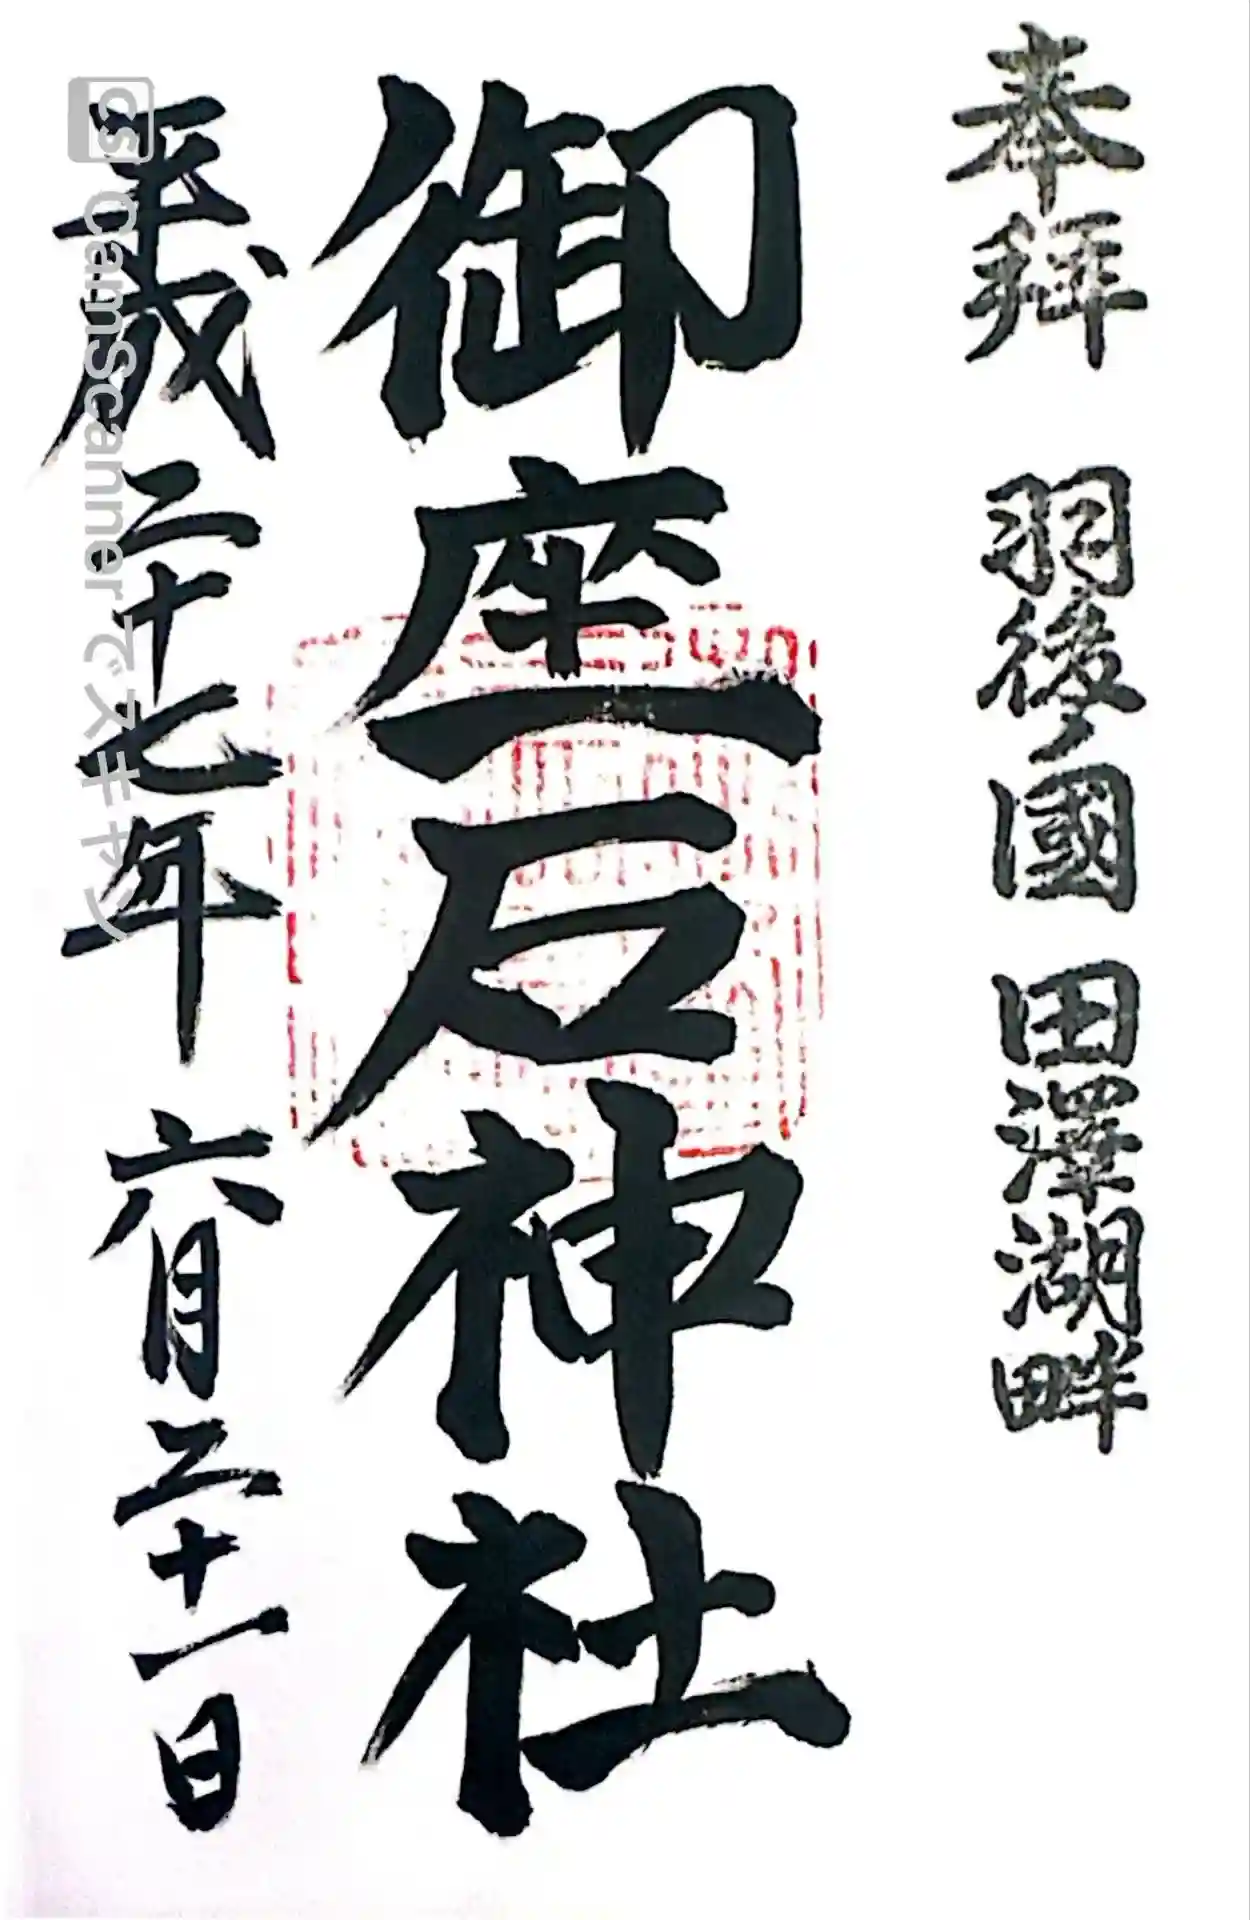 奉拜 羽後ノ國 田澤湖畔
御座石神社
平成二十七年 六月二十一日
CS CamScannerでスキャン